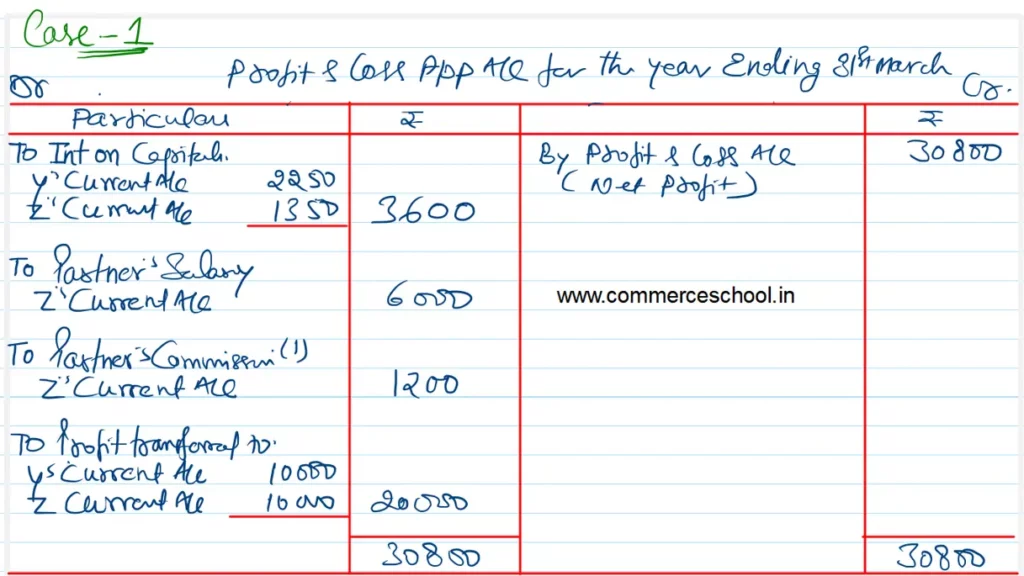 Case - 1
Profit & Loss App A/c for the year Ending 31st March
Dr
Cr.
Particulars ₹ ₹
To Int on Capital:
Y's Current A/c 2250
Z's Current A/c 1350 3600
By Profit & Loss A/c 30800
(Net Profit)
To Partner's Salary
Z's Current A/c 6000
www.commerceschool.in
To Partner's Commission (1)
Z's Current A/c 1200
To Profit transferred to:
Y's Current A/c 10000
Z Current A/c 10000 20000
30800 30800